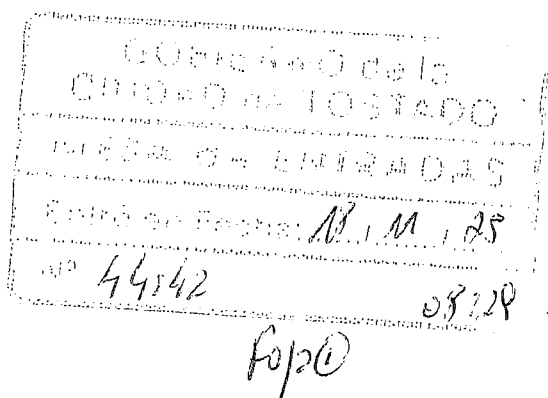 GObierNO de la
CIUDAD de TOSTADO
MESA De ENTRADAS
Entró en Fecha: 18 / 11 / 25
Nº 44142 08:28
Foja 1